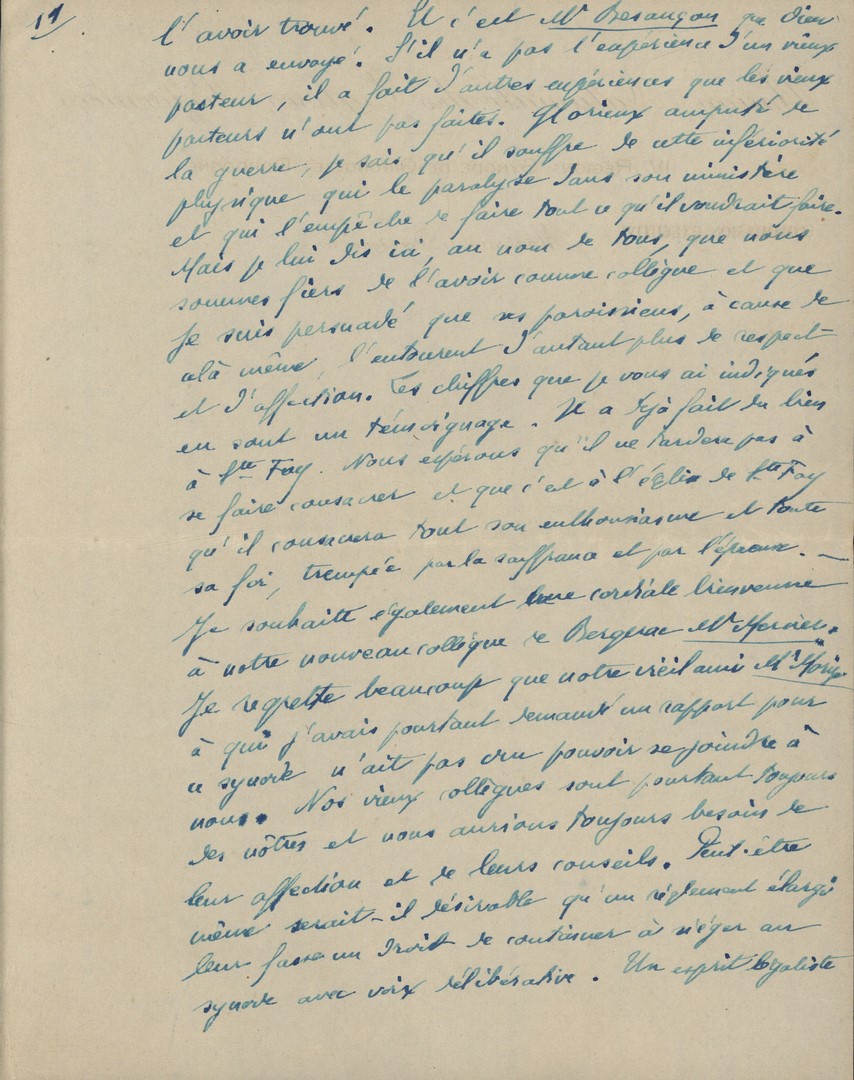 11/
l'avoir trouvé. Et c'est Mr Besançon que Dieu
nous a envoyé. S'il n'a pas l'expérience d'un vieux
pasteur, il a fait d'autres expériences que les vieux
pasteurs n'ont pas faites. Glorieux amputé de
la guerre, je sais qu'il souffre de cette infériorité
physique qui le paralyse dans son ministère
et qui l'empêche de faire tout ce qu'il voudrait faire.
Mais je lui dis ici, au nom de tous, que nous
sommes fiers de l'avoir comme collègue et que
je suis persuadé que ses paroissiens, à cause de
celà même, l'entourent d'autant plus de respect
et d'affection. Les chiffres que je vous ai indiqués
en sont un témoignage. Il a déjà fait du bien
à Ste Foy. Nous espérons qu'il ne tardera pas à
se faire consacrer et que c'est à l'église de Ste Foy
qu'il consacrera tout son enthousiasme et toute
sa foi, trempée par la souffrance et par l'épreuve. —
Je souhaite également une cordiale bienvenue
à notre nouveau collègue de Bergerac Mr Mercier.
Je regrette beaucoup que notre vieil ami Mr
à qui j'avais pourtant demandé un rapport pour
ce synode n'ait pas cru pouvoir se joindre à
nous. Nos vieux collègues sont pourtant toujours
des nôtres et nous aurions toujours besoin de
leur affection et de leurs conseils. Peut-être
même serait-il désirable qu'un règlement élargi
leur fasse un droit de continuer à siéger au
synode avec voix délibérative. Un esprit légaliste